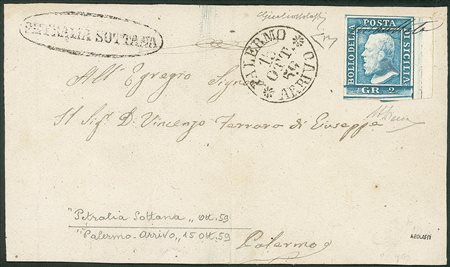 PETRALIA SOTTANA
PALERMO
15
OTT.
59
ARRIVO
BOLLO DELLA
POSTA
DI SICILIA
GR. 2
All' Egregio Signore
Il Sig.r D. Vincenzo Ferraro di Giuseppe
Palermo
"Petralia Sottana" ott. 59
"Palermo-Arrivo" 15 ott. 59